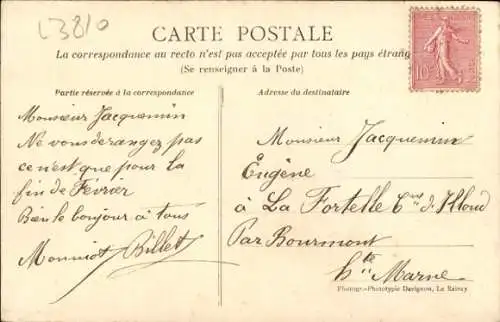 L3810
CARTE POSTALE
La correspondance au recto n'est pas acceptée par tous les pays étrang
(Se renseigner à la Poste)
Partie réservée à la correspondance
Adresse du destinataire
10
Monsieur Jacquemin
Ne vous derangez pas
ce n'est que pour la
fin de Février
Bien le bonjour à tous
Monniot Billet
Monsieur Jacquemin
Eugène
à La Fortelle Cne d'Illoud
Par Bourmont
Hte Marne
Photogr.-Phototypie Davignon, Le Raincy